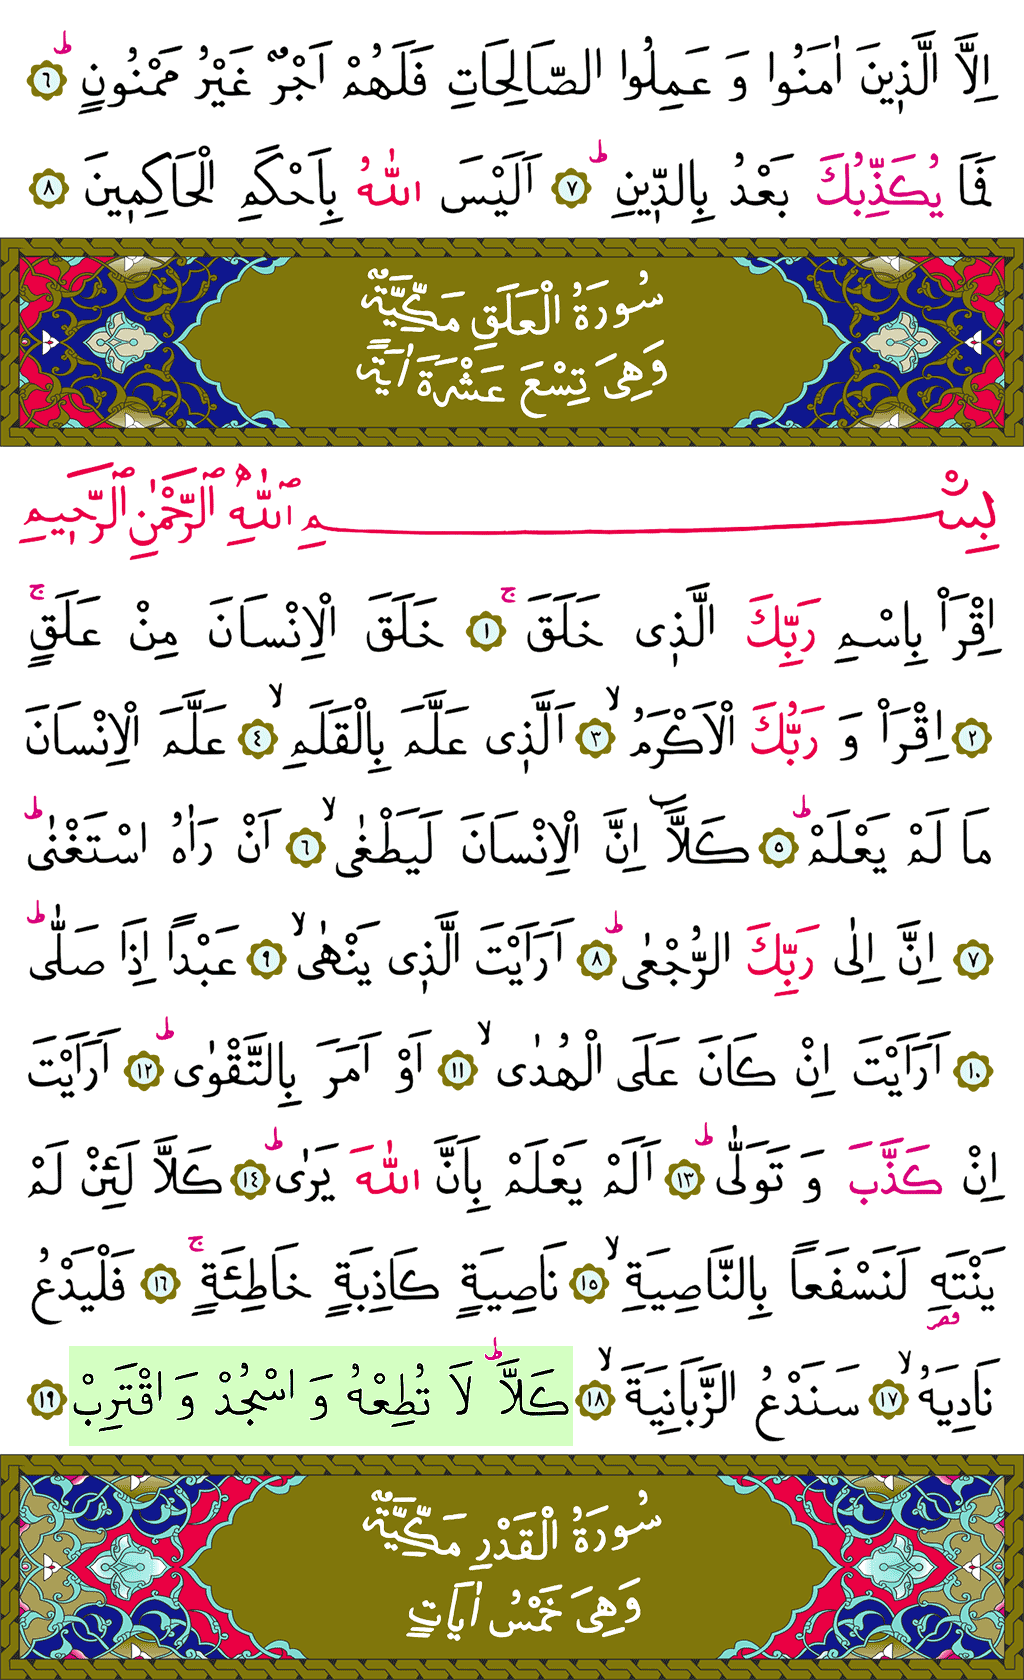 اِلَّا الَّذ۪ينَ اٰمَنُوا وَ عَمِلُوا الصَّالِحَاتِ فَلَهُمْ اَجْرٌ غَيْرُ مَمْنُونٍ ط ﴿٦﴾
فَمَا يُكَذِّبُكَ بَعْدُ بِالدّ۪ينِ ط ﴿٧﴾ اَلَيْسَ اللّٰهُ بِاَحْكَمِ الْحَاكِم۪ينَ ﴿٨﴾
سُورَةُ الْعَلَقِ مَكِّيَّةٌ
وَهِىَ تِسْعَ عَشْرَةَ اٰيَةً
بِسْمِ اللّٰهِ الرَّحْمٰنِ الرَّح۪يمِ
اِقْرَاْ بِاسْمِ رَبِّكَ الَّذ۪ى خَلَقَ ج ﴿١﴾ خَلَقَ الْاِنْسَانَ مِنْ عَلَقٍ ج
﴿٢﴾ اِقْرَاْ وَ رَبُّكَ الْاَكْرَمُ لا ﴿٣﴾ اَلَّذ۪ى عَلَّمَ بِالْقَلَمِ لا ﴿٤﴾ عَلَّمَ الْاِنْسَانَ
مَا لَمْ يَعْلَمْ ط ﴿٥﴾ كَلَّٓا اِنَّ الْاِنْسَانَ لَيَطْغٰى لا ﴿٦﴾ اَنْ رَاٰهُ اسْتَغْنٰى ط
﴿٧﴾ اِنَّ اِلٰى رَبِّكَ الرُّجْعٰى ط ﴿٨﴾ اَرَاَيْتَ الَّذ۪ى يَنْهٰى لا ﴿٩﴾ عَبْدًا اِذَا صَلّٰى ط
﴿١٠﴾ اَرَاَيْتَ اِنْ كَانَ عَلَى الْهُدٰى لا ﴿١١﴾ اَوْ اَمَرَ بِالتَّقْوٰى ط ﴿١٢﴾ اَرَاَيْتَ
اِنْ كَذَّبَ وَ تَوَلّٰى ط ﴿١٣﴾ اَلَمْ يَعْلَمْ بِاَنَّ اللّٰهَ يَرٰى ط ﴿١٤﴾ كَلَّا لَئِنْ لَمْ
يَنْتَهِ قصر لَنَسْفَعًا بِالنَّاصِيَةِ لا ﴿١٥﴾ نَاصِيَةٍ كَاذِبَةٍ خَاطِئَةٍ ج ﴿١٦﴾ فَلْيَدْعُ
نَادِيَهُ لا ﴿١٧﴾ سَنَدْعُ الزَّبَانِيَةَ لا ﴿١٨﴾ كَلَّا ط لَا تُطِعْهُ وَ اسْجُدْ وَ اقْتَرِبْ ﴿١٩﴾
سُورَةُ الْقَدْرِ مَكِّيَّةٌ
وَهِىَ خَمْسُ اٰيَاتٍ